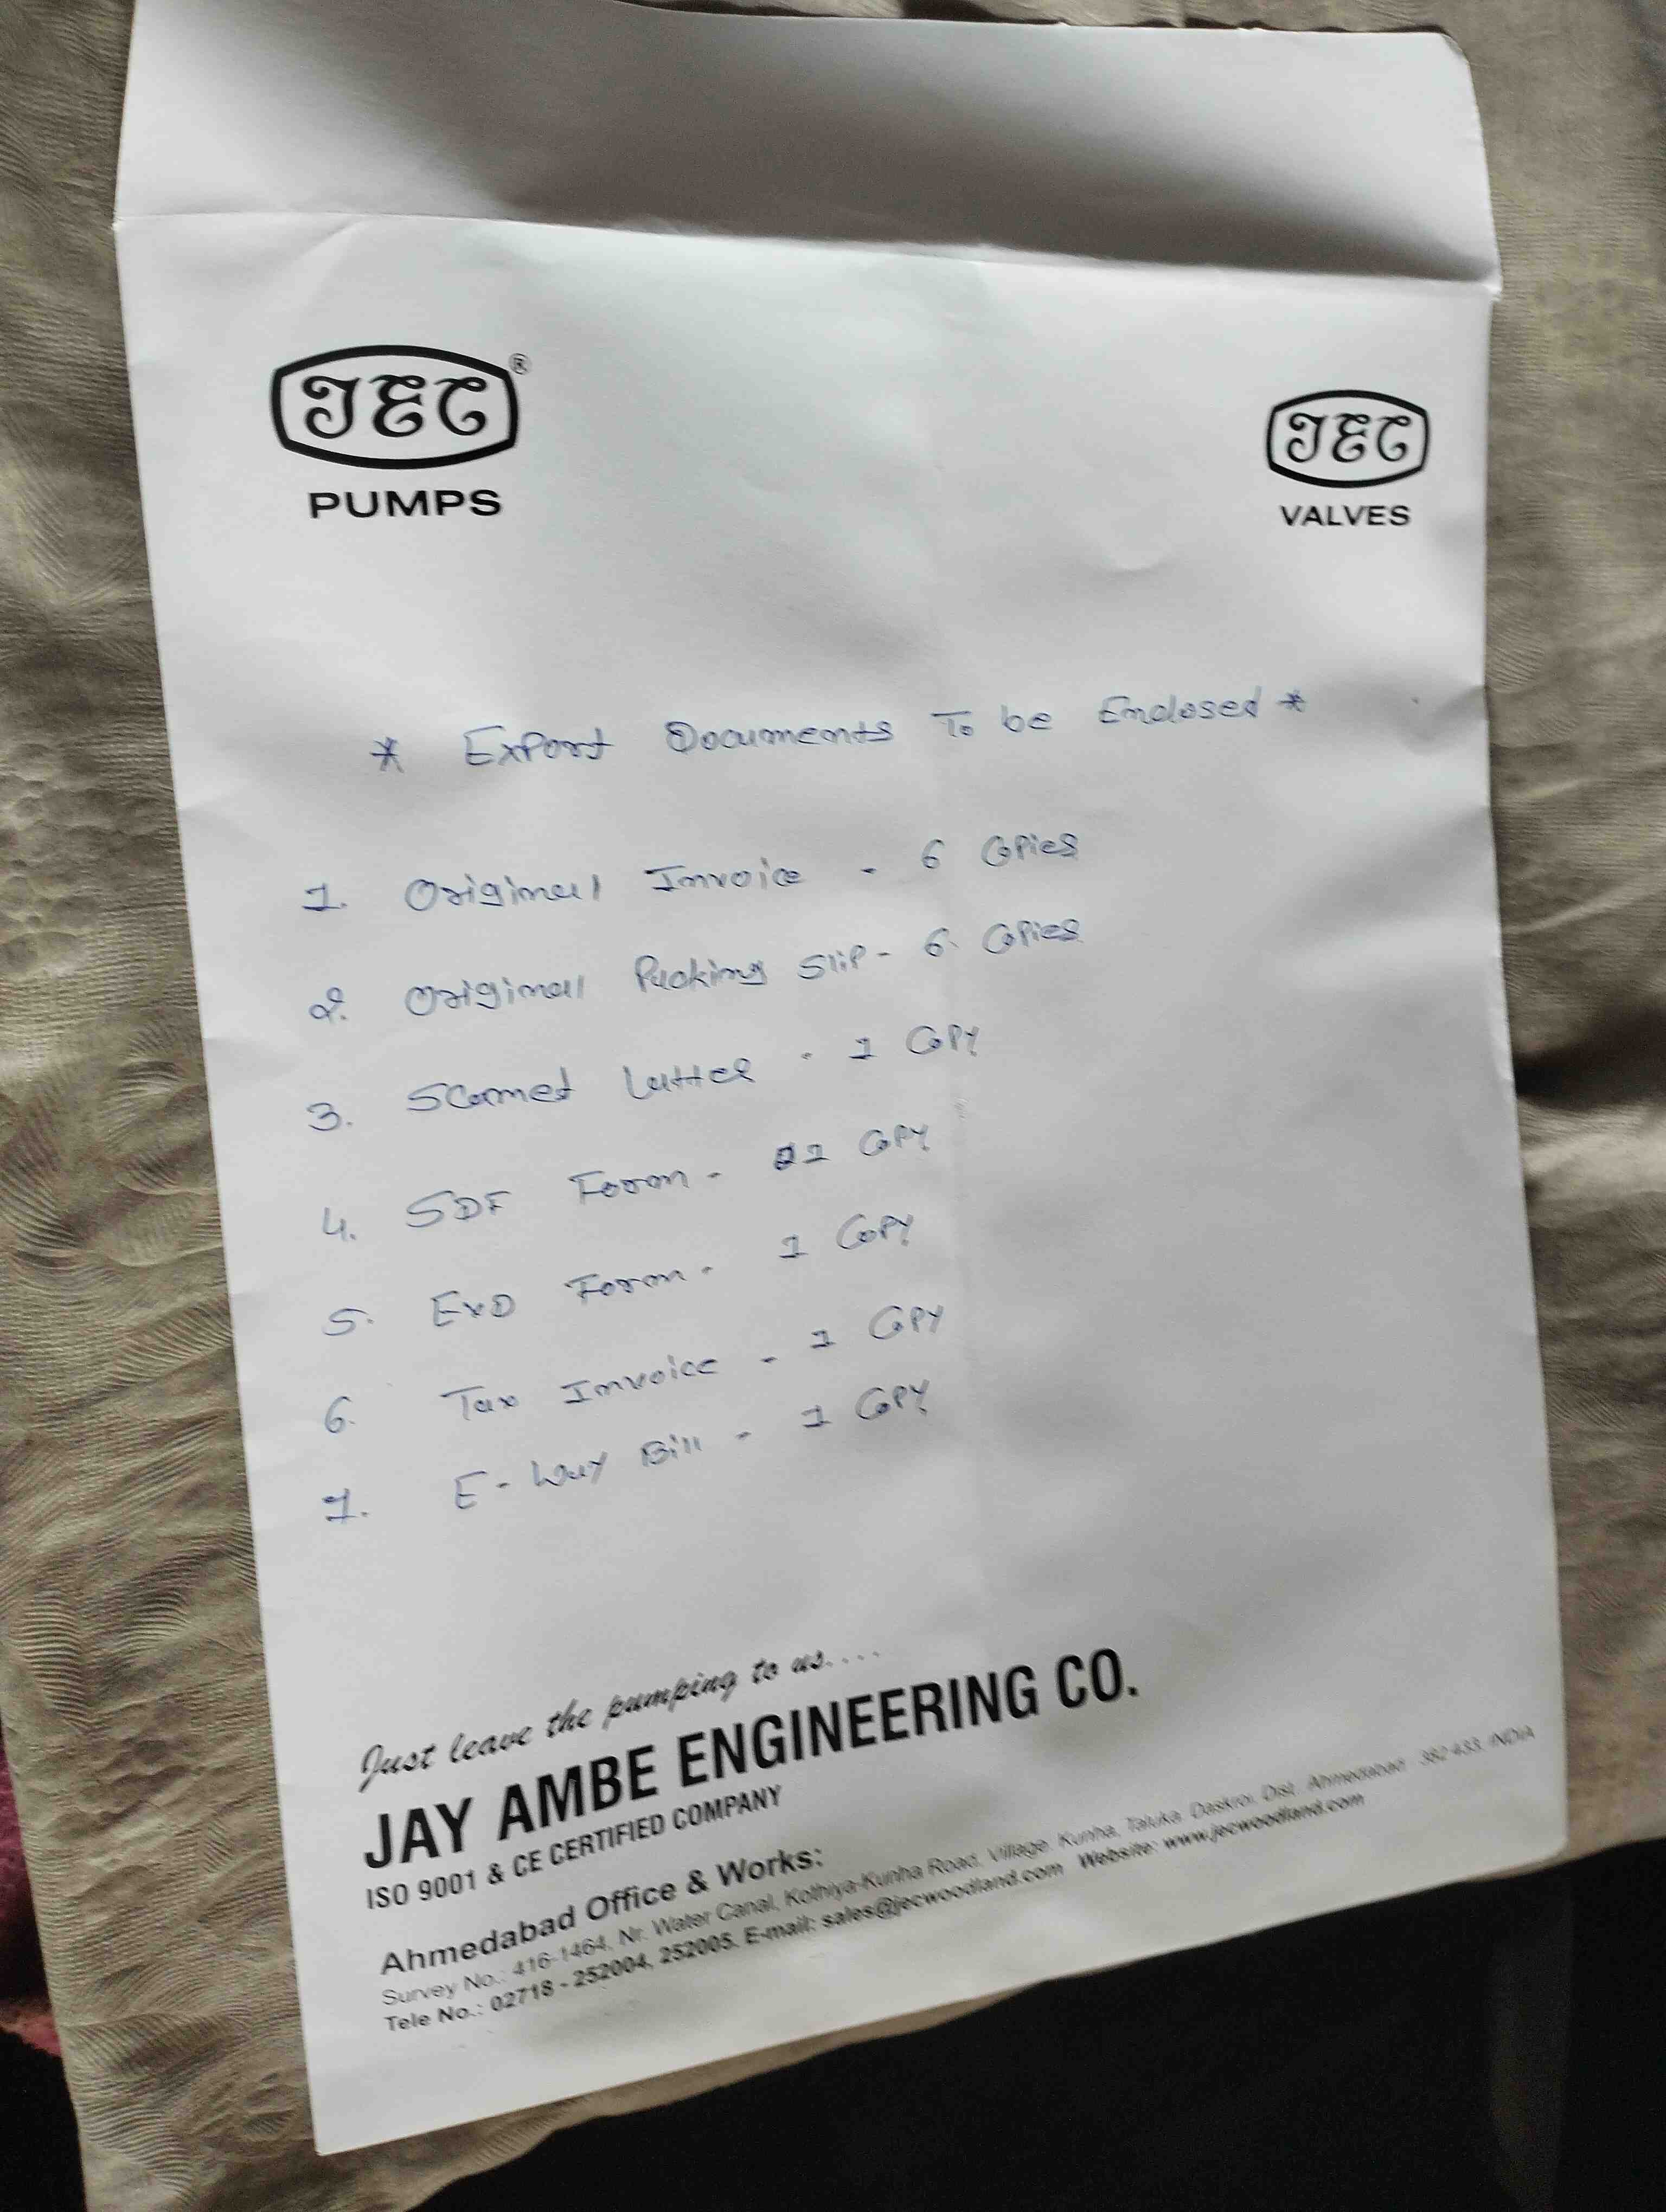 JEC ®
PUMPS
JEC
VALVES
* Export Documents To be Enclosed *
1. Original Invoice - 6 Copies
2. Original Packing Slip - 6 Copies
3. Scomet Letter - 1 Copy
4. SDF Form - 1 Copy
5. ExD Form - 1 Copy
6. Tax Invoice - 1 Copy
7. E-Way Bill - 1 Copy
Just leave the pumping to us....
JAY AMBE ENGINEERING CO.
ISO 9001 & CE CERTIFIED COMPANY
Ahmedabad Office & Works:
Survey No.: 416-1464, Nr. Water Canal, Kothiya-Kunha Road, Village: Kunha, Taluka: Daskroi, Dist.: Ahmedabad - 382 433. INDIA
Tele No.: 02718 - 252004, 252005. E-mail: sales@jecwoodland.com Website: www.jecwoodland.com